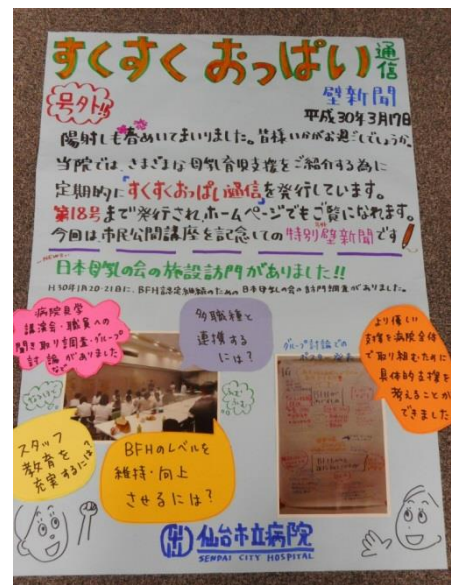 すくすく おっぱい 通信
号外!!
壁新聞
平成30年3月17日
陽射しも春めいてまいりました。皆様いかがお過ごしでしょうか。
当院では、さまざまな母乳育児支援をご紹介する為に
定期的に「すくすくおっぱい通信」を発行しています。
第18号まで発行され、ホームページでもご覧になれます。
今回は市民公開講座を記念しての特別壁新聞です
NEWS
日本母乳の会の施設訪問がありました!!
H30年1月20・21日に、BFH認定継続のための日本母乳の会の訪問調査がありました。
病院見学
講演会・職員への
聞き取り調査・グループ
討論がありました
など
多職種と
連携する
には?
グループ討論での
ポスター発表
より優しい
支援を病院全体
で取り組むために
具体的支援を
考えることが
できました
スタッフ
教育を
充実するには?
BFHのレベルを
維持・向上
させるには?
仙台市立病院
SENDAI CITY HOSPITAL